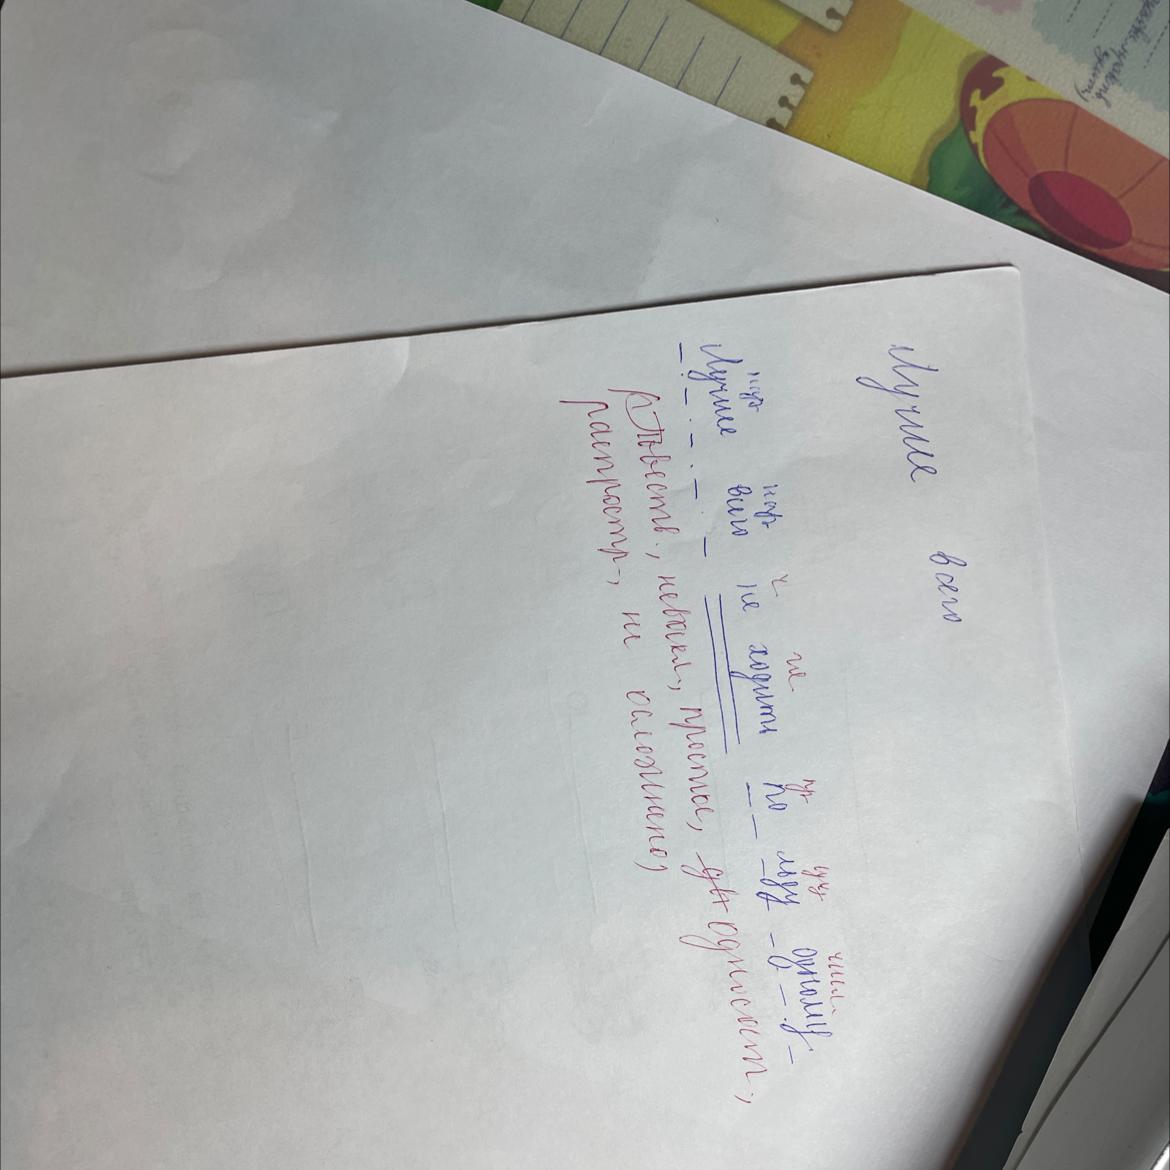 Лучше всего
нар нар ч гл пр сущ числ.
Лучше всего не ходить по льду одному.
Повеств., невоскл., простое, односост.,
распростр., не осложнено,